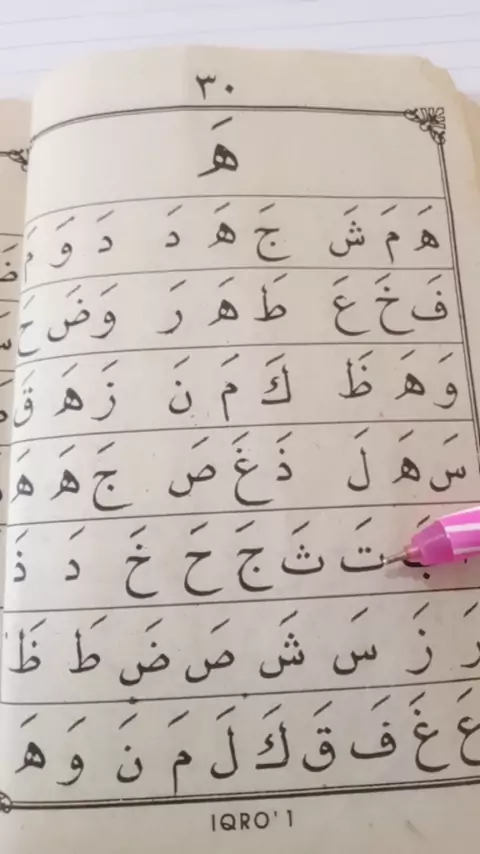 ٣٠
هَ
هَ مَ شَ جَ هَ دَ دَ وَ مَ
فَ خَ عَ طَ هَ رَ وَ ضَ حَ
وَ هَ ظَ كَ مَ نَ زَ هَ قَ
سَ هَ لَ ذَ غَ صَ جَ هَ هَ
بَ تَ ثَ جَ حَ خَ دَ ذَ
رَ زَ سَ شَ صَ ضَ طَ ظَ
عَ غَ فَ قَ كَ لَ مَ نَ وَ هَ
IQRO' 1